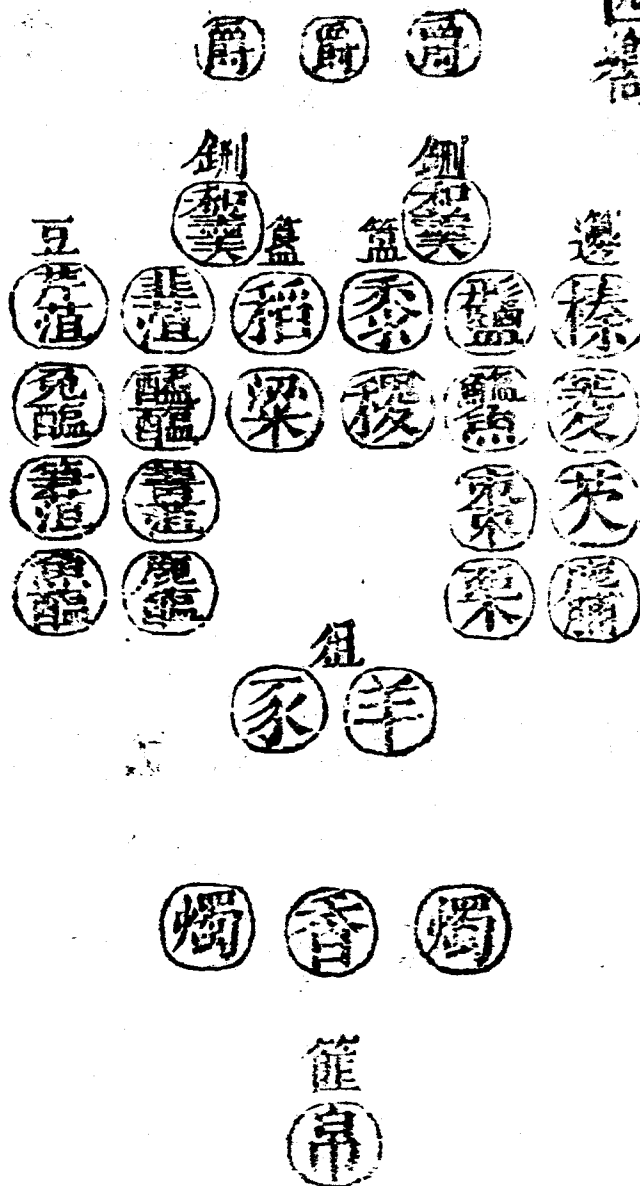 爵 爵 爵
鉶 鉶
和羹 和羹
豆 簋 簠 籩
芹菹 韭菹 稻 黍 形鹽 榛
兔醢 醓醢 粱 稷 魚 菱
笋菹 菁菹 棗 芡
魚醢 鹿醢 栗 鹿脯
俎
豕 羊
燭 香 燭
篚
帛